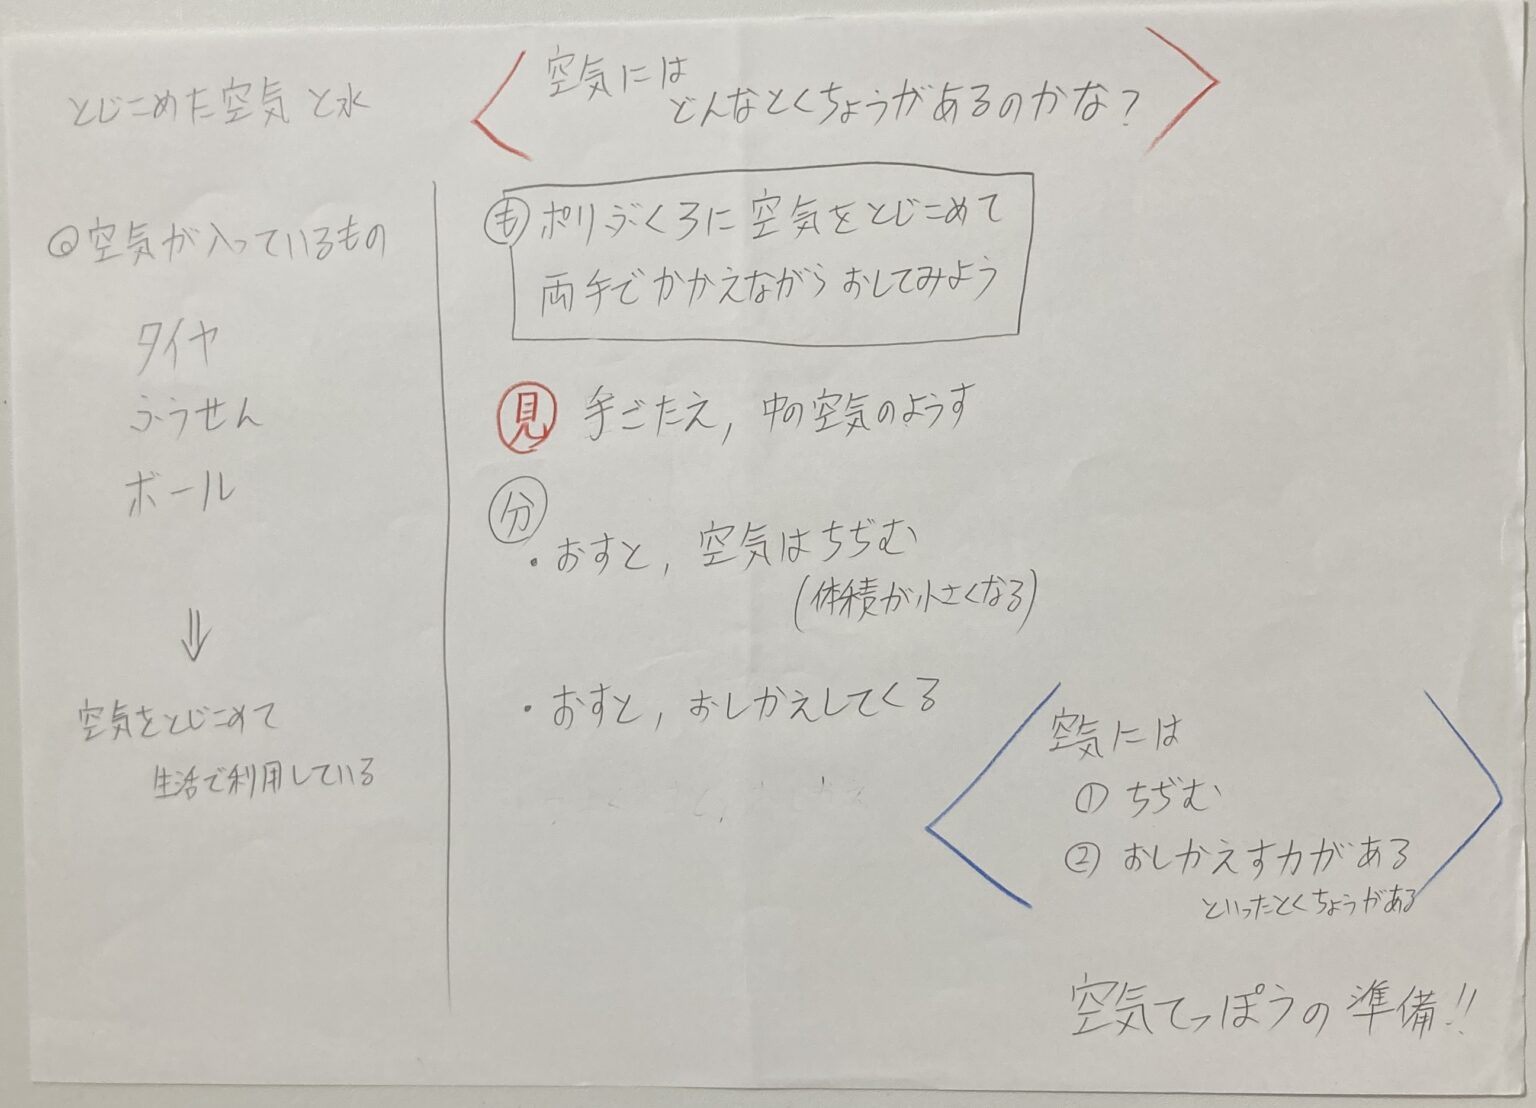 とじこめた空気と水
◎空気が入っているもの
タイヤ
ふうせん
ボール
⇓
空気をとじこめて
生活で利用している
空気には
どんなとくちょうがあるのかな?
も ポリぶくろに空気をとじこめて
両手でかかえながらおしてみよう
見 手ごたえ, 中の空気のようす
分
・おすと, 空気はちぢむ
(体積が小さくなる)
・おすと, おしかえしてくる
空気には
① ちぢむ
② おしかえす力がある
といったとくちょうがある
空気てっぽうの準備!!